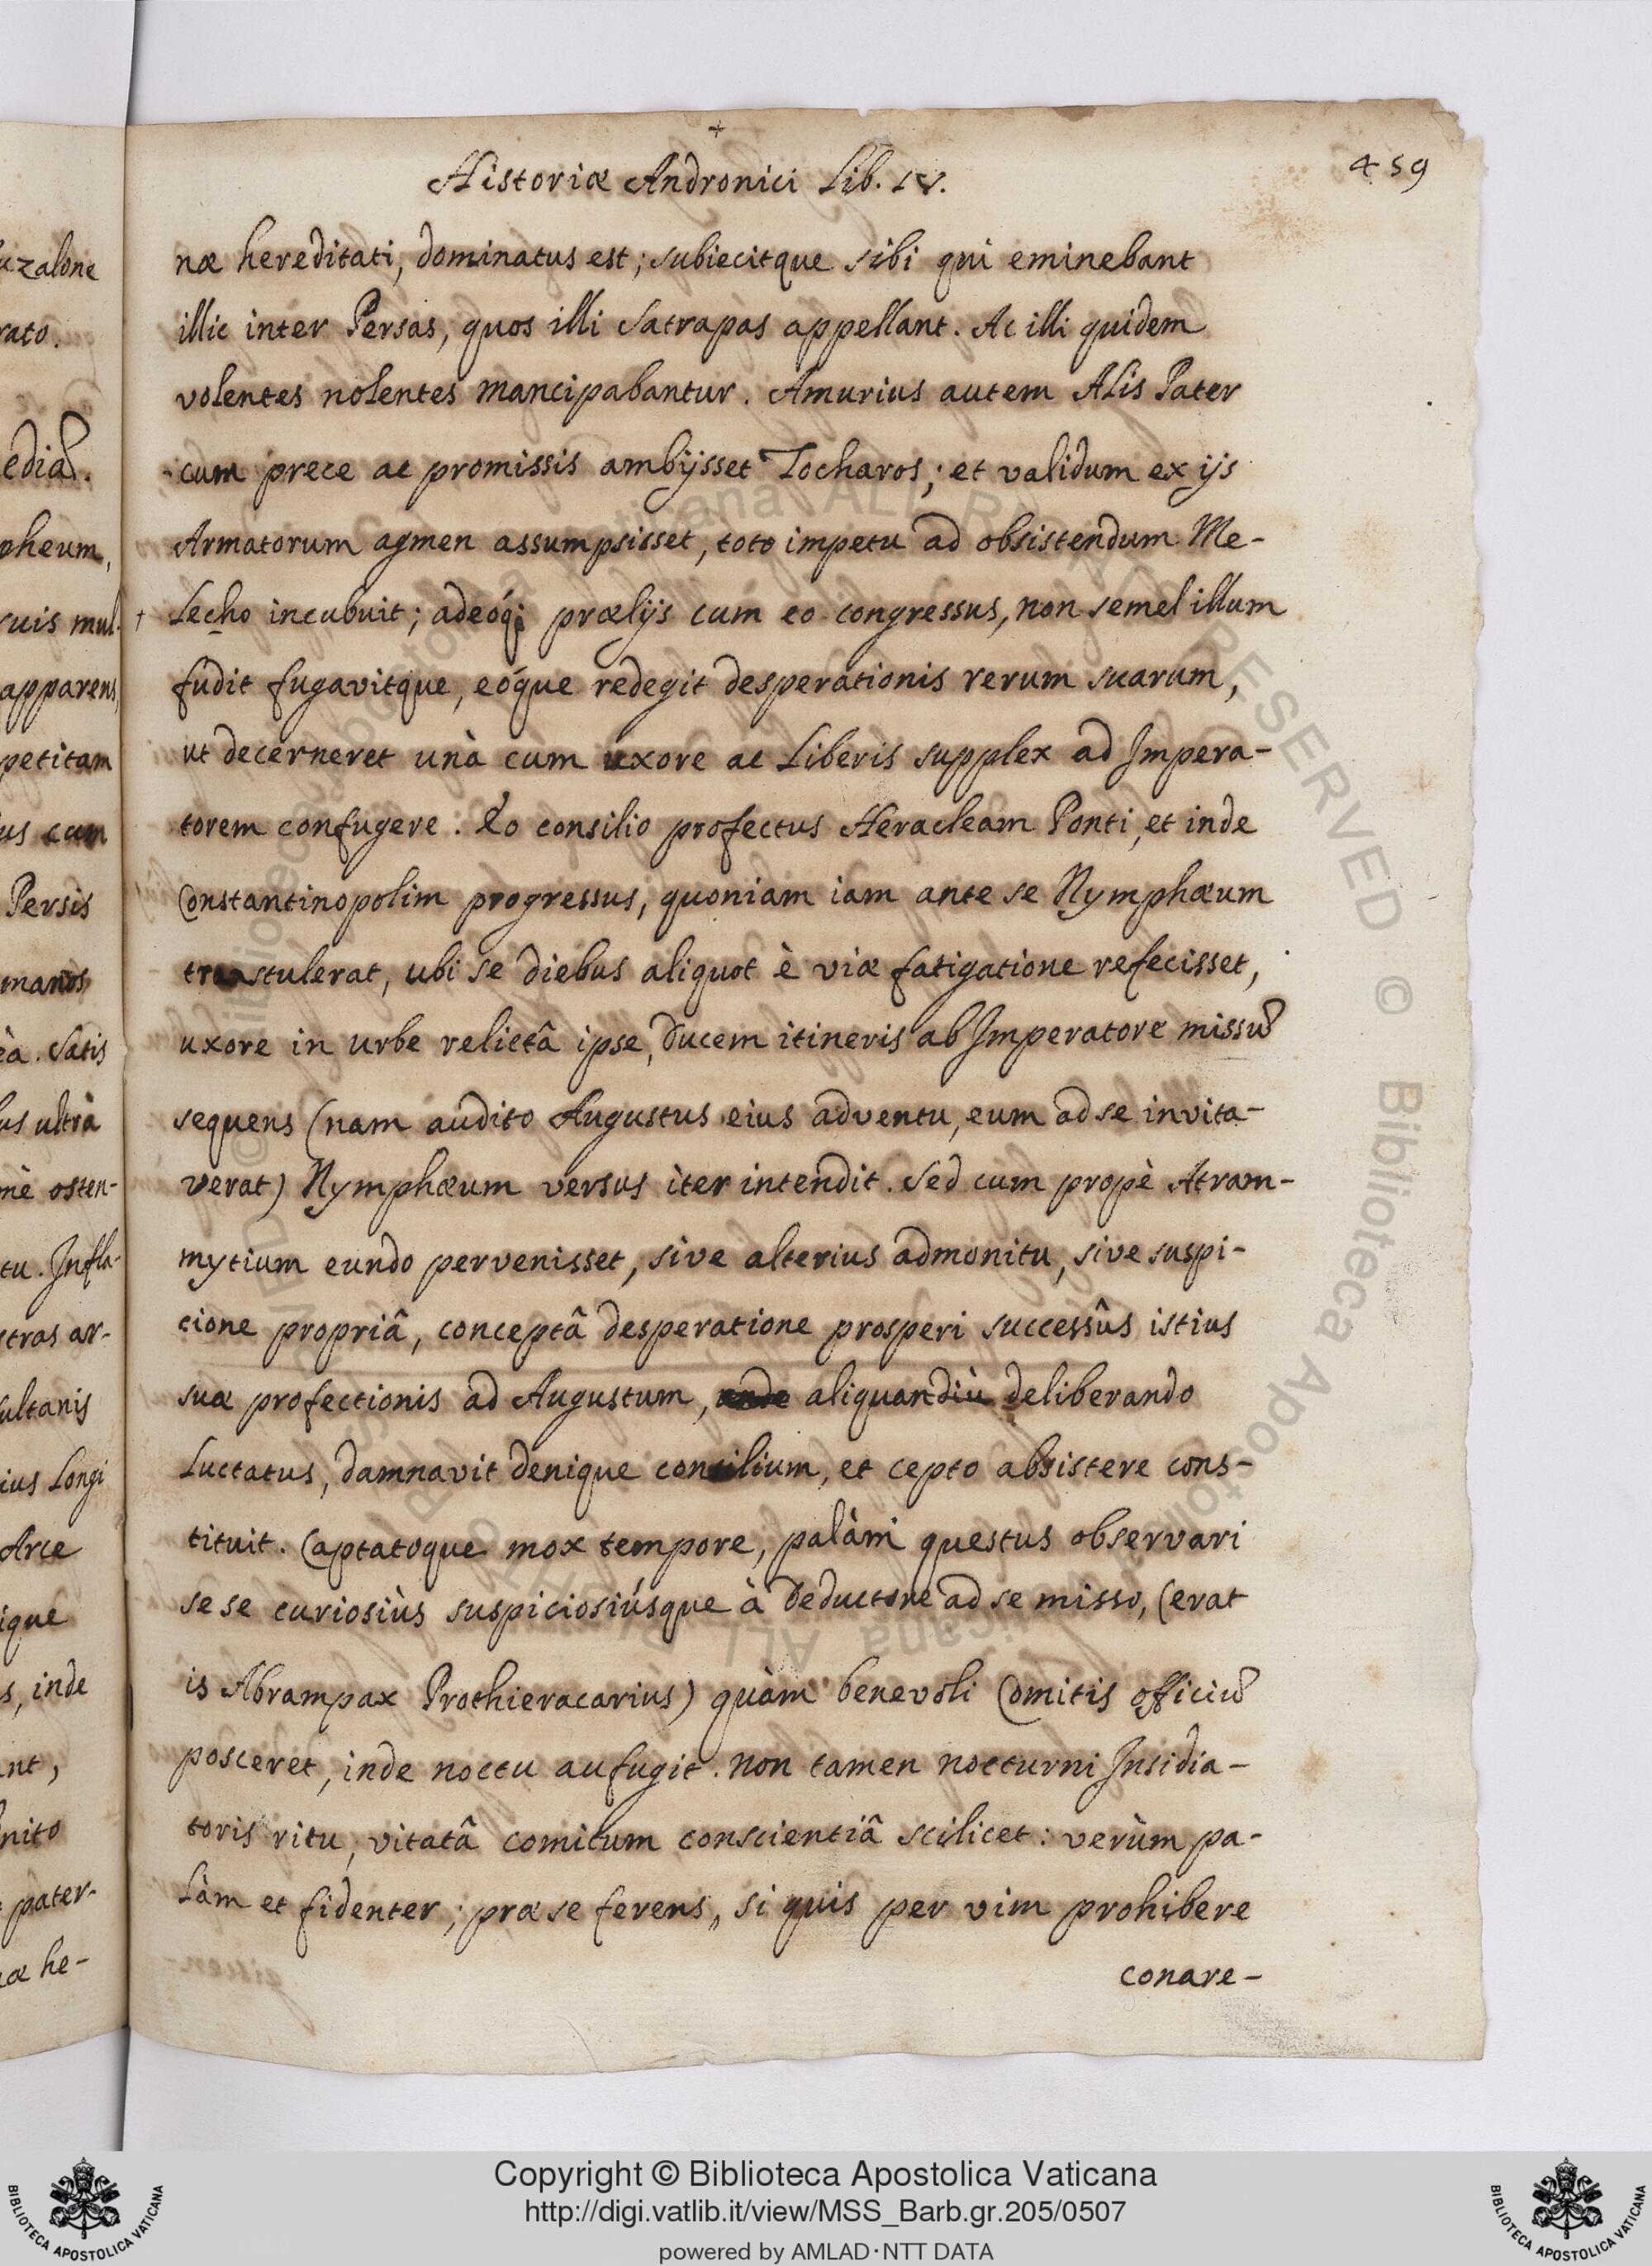 Historiæ Andronici Lib. IV.
459
næ hereditati, dominatus est; subiecitque sibi qui eminebant
illic inter Persas, quos illi Satrapas appellant. Ac illi quidem
volentes nolentes mancipabantur. Amurius autem Alis Pater
cum prece ac promissis ambijsset Tocharos; et validum ex ijs
Armatorum agmen assumpsisset, toto impetu ad obsistendum Me-
† Lecho incubuit; adeóq; prælijs cum eo congressus, non semel illum
fudit fugavitque, eóque redegit desperationis rerum suarum,
ut decerneret unà cum uxore ac Liberis supplex ad Impera-
torem confugere. Eo consilio profectus Heracleam Ponti, et inde
Constantinopolim progressus, quoniam iam ante se Nymphæum
transtulerat, ubi se diebus aliquot è viæ fatigatione refecisset,
uxore in urbe relictâ ipse, ducem itineris ab Imperatore missū
sequens (nam audito Augustus eius adventu, eum ad se invita-
verat) Nymphæum versus iter intendit. Sed cum propè Atram-
mytium eundo pervenisset, sive alterius admonitu, sive suspi-
cione propriâ, conceptâ desperatione prosperi successûs istius
suæ profectionis ad Augustum, aliquandiù deliberando
Luctatus, damnavit denique consilium, et cepto absistere cons-
tituit. Captatoque mox tempore, palàm questus observari
sese curiosiùs suspiciosiúsque à deductore ad se misso, (erat
is Abrampax Prothieracarius) quàm benevoli Comitis officiū
posceret, inde noctu aufugit. non tamen nocturni Insidia-
toris ritu, vitatâ comitum conscientiâ scilicet: verùm pa-
Làm et fidenter; præ se ferens, si quis per vim prohibere
conare-
uzalone
rato.
pheum,
suis mul-
apparens,
petitam
us cum
Persis
manos
eà. Satis
us ultrà
nè osten-
tu. Infla-
stras ar-
ultanis
ius Longi
Arce
ique
s, inde
nt,
nito
pater-
æ he-
© Biblioteca Apostolica Vaticana ALL RIGHTS RESERVED
Copyright © Biblioteca Apostolica Vaticana
http://digi.vatlib.it/view/MSS_Barb.gr.205/0507
powered by AMLAD·NTT DATA
BIBLIOTECA APOSTOLICA VATICANA
BIBLIOTECA APOSTOLICA VATICANA